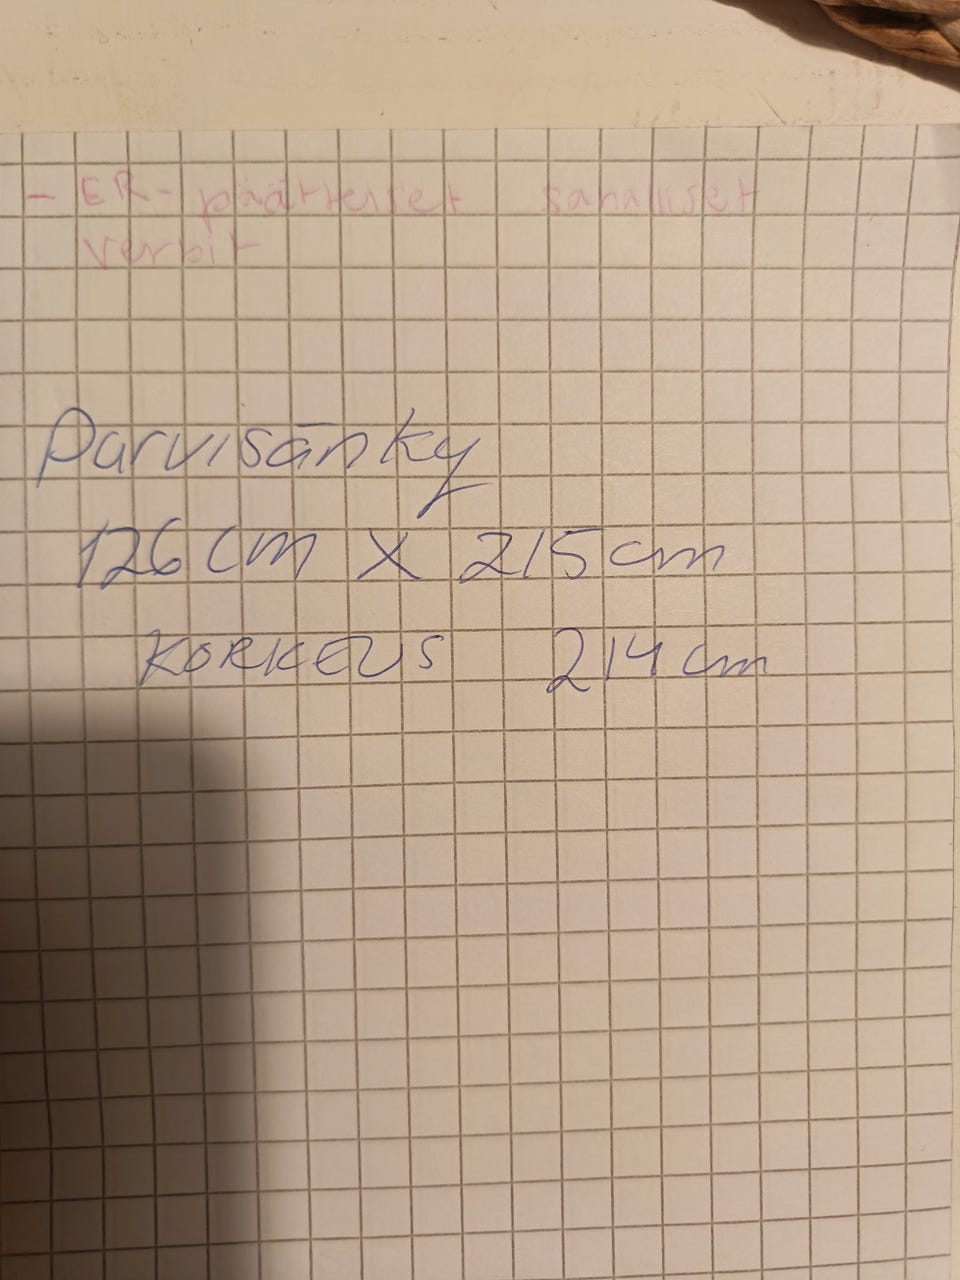 - ER-päätteiset sanalliset
verbit
Parvisänky
126 cm x 215 cm
KORKEUS 214 cm